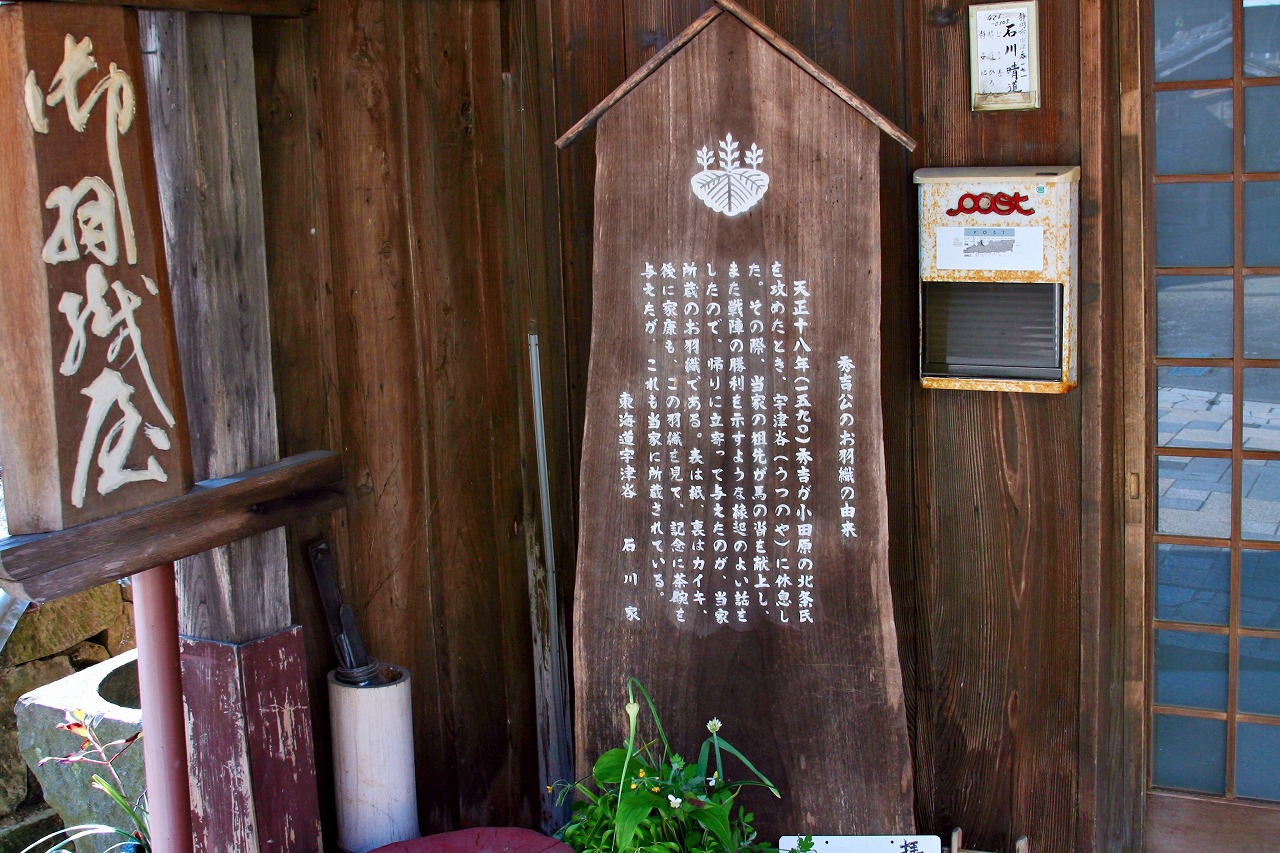 御羽織屋
秀吉公のお羽織の由来
天正十八年(一五九〇)秀吉が小田原の北条氏
を攻めたとき、宇津谷(うつのや)に休息し
た。その際、当家の祖先が馬の沓を献上し、
また戦陣の勝利を示すような縁起のよい話を
したので、帰りに立寄って与えたのが、当家
所蔵のお羽織である。表は紙、裏はカイキ、
後に家康も、この羽織を見て、記念に茶腕を
与えたが、これも当家に所蔵されている。
東海道宇津谷 石川家
石川晴道
post
POST